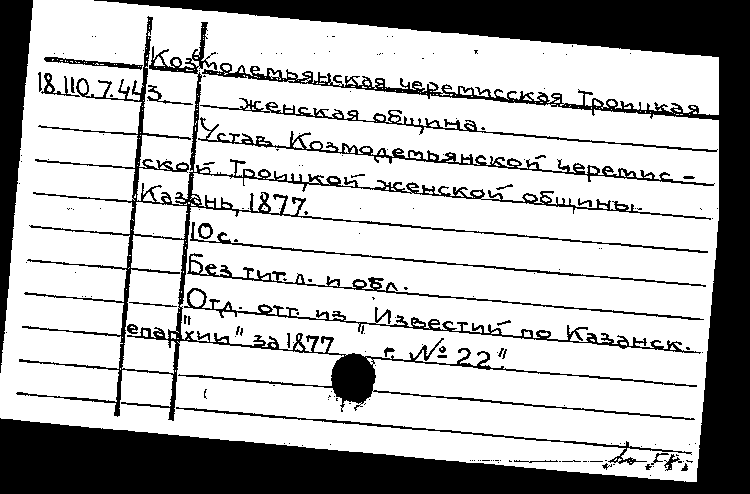 Козьмодемьянская черемисская Троицкая
18.110.7.443.
женская община.
Устав Козмодемьянской черемис-
ской Троицкой женской общины.
Казань, 1877.
10 с.
Без тит. л. и обл.
Отд. отт. из "Известий по Казанск.
епархии" за 1877 г. № 22".